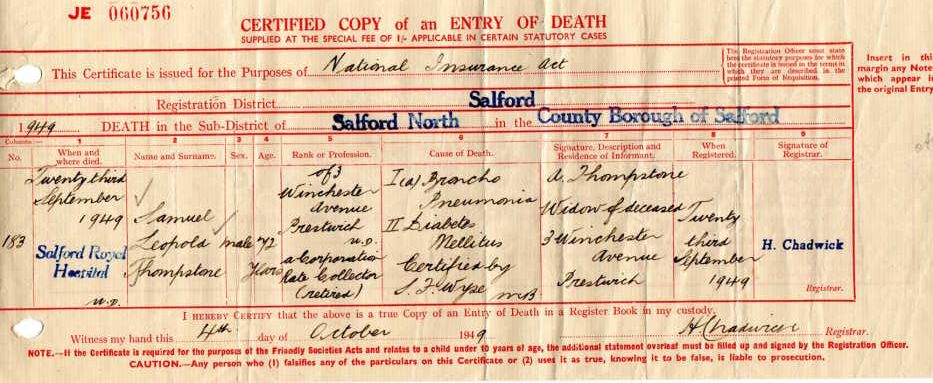 JE 060756
CERTIFIED COPY of an ENTRY OF DEATH
SUPPLIED AT THE SPECIAL FEE OF 1/- APPLICABLE IN CERTAIN STATUTORY CASES
This Certificate is issued for the Purposes of National Insurance Act
The Registration Officer must state
here the statutory purposes for which
the certificate is issued in the terms in
which they are described in the
printed Form of Requisition.
Insert in thi
margin any Note
which appear i
the original Entry
Registration District Salford
1949 DEATH in the Sub-District of Salford North in the County Borough of Salford
Columns:— 1 2 3 4 5 6 7 8 9
No. When and where died. Name and Surname. Sex. Age. Rank or Profession. Cause of Death. Signature, Description and Residence of Informant. When Registered. Signature of Registrar.
183
Twenty third
September
1949
Salford Royal
Hospital
U.D.
Samuel
Leopold
Thompstone
male
72
Years
of 3
Winchester
Avenue
Prestwich
U.D.
a Corporation
Rate Collector
(retired)
I (a) Broncho
Pneumonia
II Diabetes
Mellitus
Certified by
S. F. Wyse M.B.
A. Thompstone
Widow of deceased
3 Winchester
Avenue
Prestwich
Twenty
third
September
1949
H. Chadwick
Registrar.
I HEREBY CERTIFY that the above is a true Copy of an Entry of Death in a Register Book in my custody.
Witness my hand this 4th day of October 1949 H Chadwick Registrar.
NOTE.—If the Certificate is required for the purposes of the Friendly Societies Acts and relates to a child under 10 years of age, the additional statement overleaf must be filled up and signed by the Registration Officer.
CAUTION.—Any person who (1) falsifies any of the particulars on this Certificate or (2) uses it as true, knowing it to be false, is liable to prosecution.